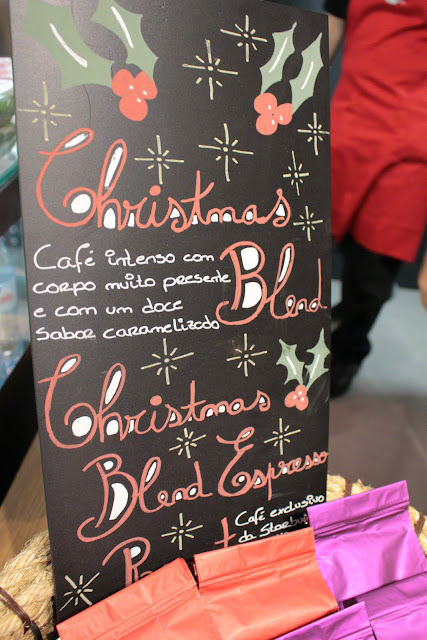 Christmas
Café intenso com
corpo muito presente
e com um doce
sabor caramelizado
Blend
Christmas
Blend Espresso
Café exclusivo
da